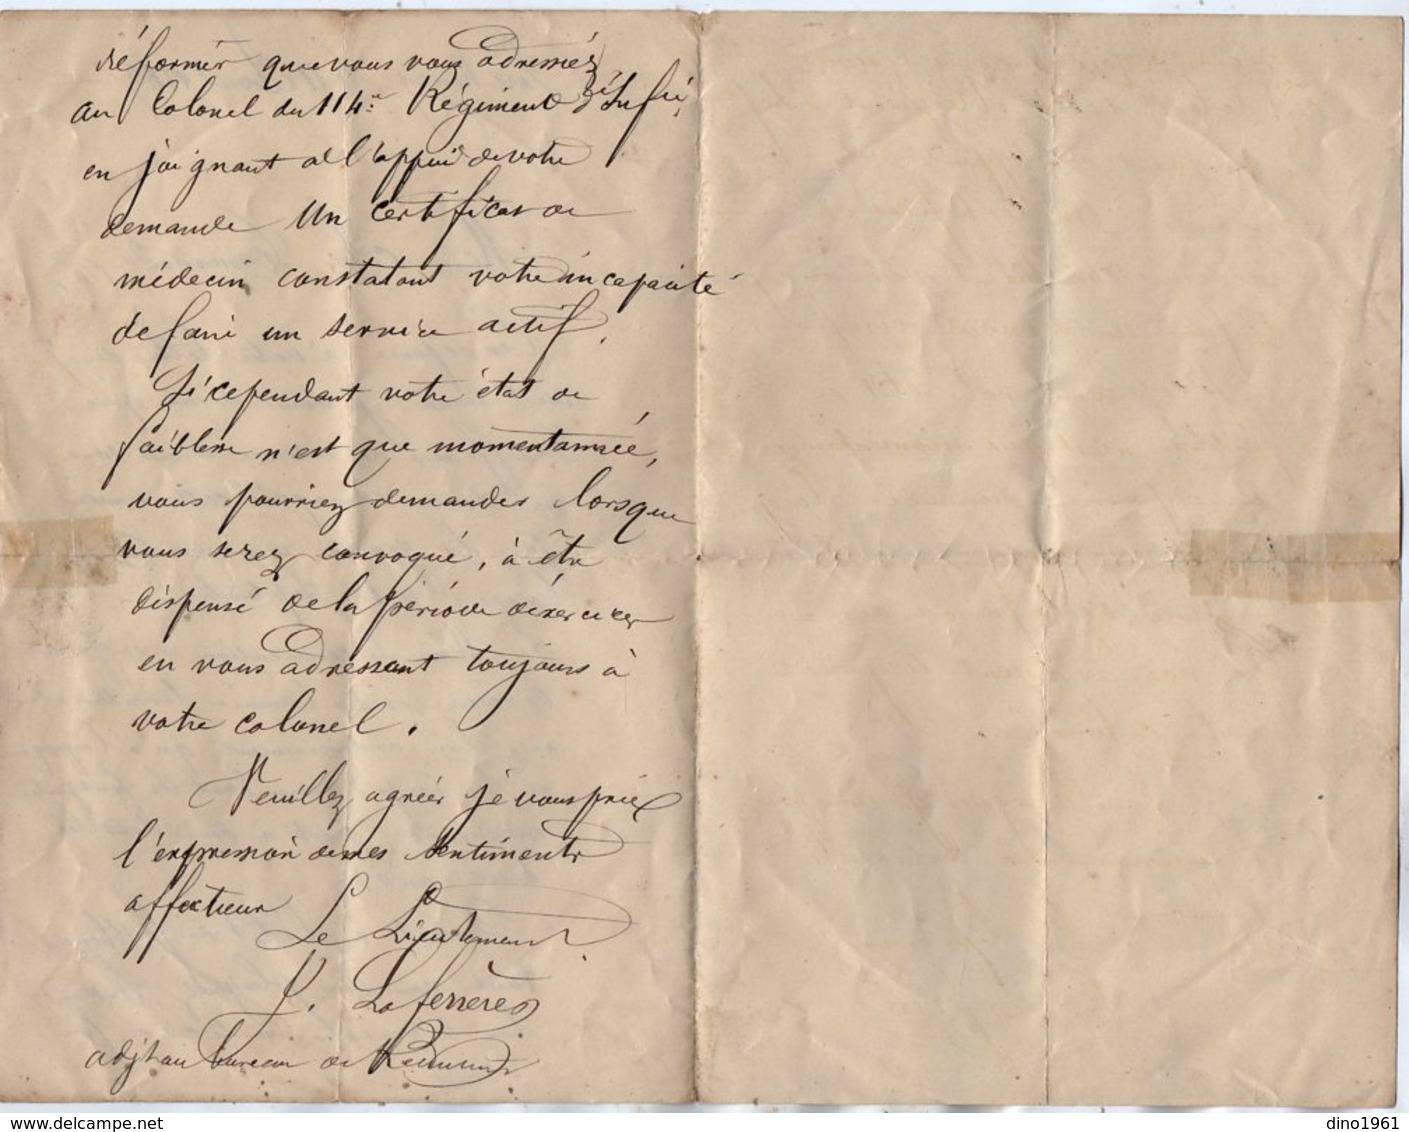 réformer que vous vous adressiez
au Colonel du 114e Régiment d'Infie,
en joignant à l'appui de votre
demande un certificat de
médecin constatant votre incapacité
de faire un service actif.
Si cependant votre état de
faiblesse n'est que momentannée,
vous pourriez demander lorsque
vous serez convoqué, à être
dispensé de la période d'exercices
en vous adressant toujours à
votre colonel.
Veuillez agréer je vous prie
l'expression de mes sentiments
affectueux
Le Lieutenant
J. Laferrères
adjt au bureau de
dino1961